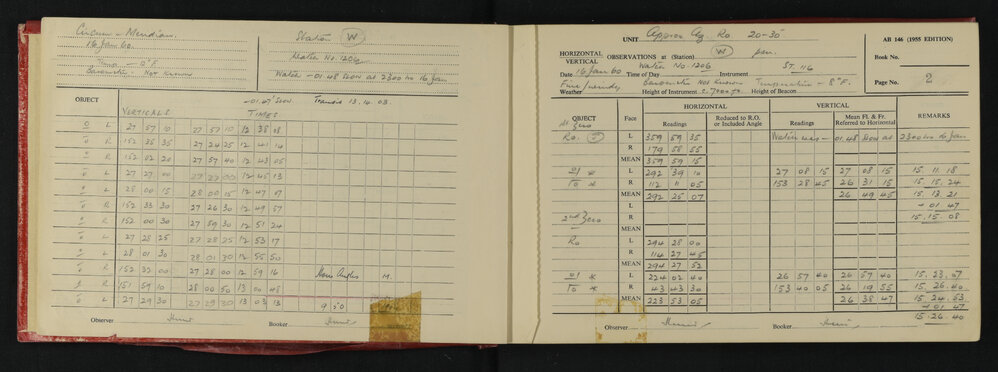 Circum - Meridian.
16 Jan 60.
Temp - 8°F.
Barometer - Not Known
Station (W)
Watch No. 1206
Watch - 01.48 slow at 2300 hrs 16 Jan
-01.47 slow. Transit 13.14.03.
OBJECT VERTICALS TIMES
L 27 57 10 27 57 10 12 38 08
R 152 35 35 27 24 25 12 41 14
R 152 02 20 27 57 40 12 43 05
L 27 27 00 27 27 00 12 45 13
L 28 00 15 28 00 15 12 47 07
R 152 33 30 27 26 30 12 49 57
R 152 00 30 27 59 30 12 51 24
L 27 28 25 27 28 25 12 53 17
L 28 01 30 28 01 30 12 55 50
R 152 32 00 27 28 00 12 59 16 Hour Angles M.
R 151 59 10 28 00 50 13 00 48
L 27 29 30 27 29 30 13 03 13 9 50
Observer Booker
UNIT Approx Az. Ro 20-30 AB 146 (1955 EDITION)
HORIZONTAL
VERTICAL OBSERVATIONS at (Station) (W) Book No.
Watch No. 1206 ST. 116
Date 16 Jan 60 Time of Day Instrument Page No. 2
Barometer Not Known Temperature - 8°F.
Weather Height of Instrument Height of Beacon
HORIZONTAL VERTICAL
OBJECT Face Readings Reduced to R.O. or Included Angle Readings Mean Fl. & Fr. Referred to Horizontal REMARKS
1st Zero
Ro. L 359 59 35 Watch was - 01.48 slow at 2300 hrs 16 Jan.
R 179 58 55
MEAN 359 59 15
* L 292 39 10 27 08 15 27 08 15 15.11.18
* R 112 11 05 153 28 45 26 31 15 15.15.24
MEAN 292 25 07 26 49 45 15.13.21
L + 01.47
2nd Zero R 15.15.08
MEAN
Ro L 294 28 00
R 114 27 45
MEAN 294 27 52
* L 224 02 40 26 57 40 26 57 40 15.23.07
* R 43 43 30 153 40 05 26 19 55 15.26.40
MEAN 223 53 05 26 38 47 15.24.53
+ 01.47
Observer Booker 15.26.40